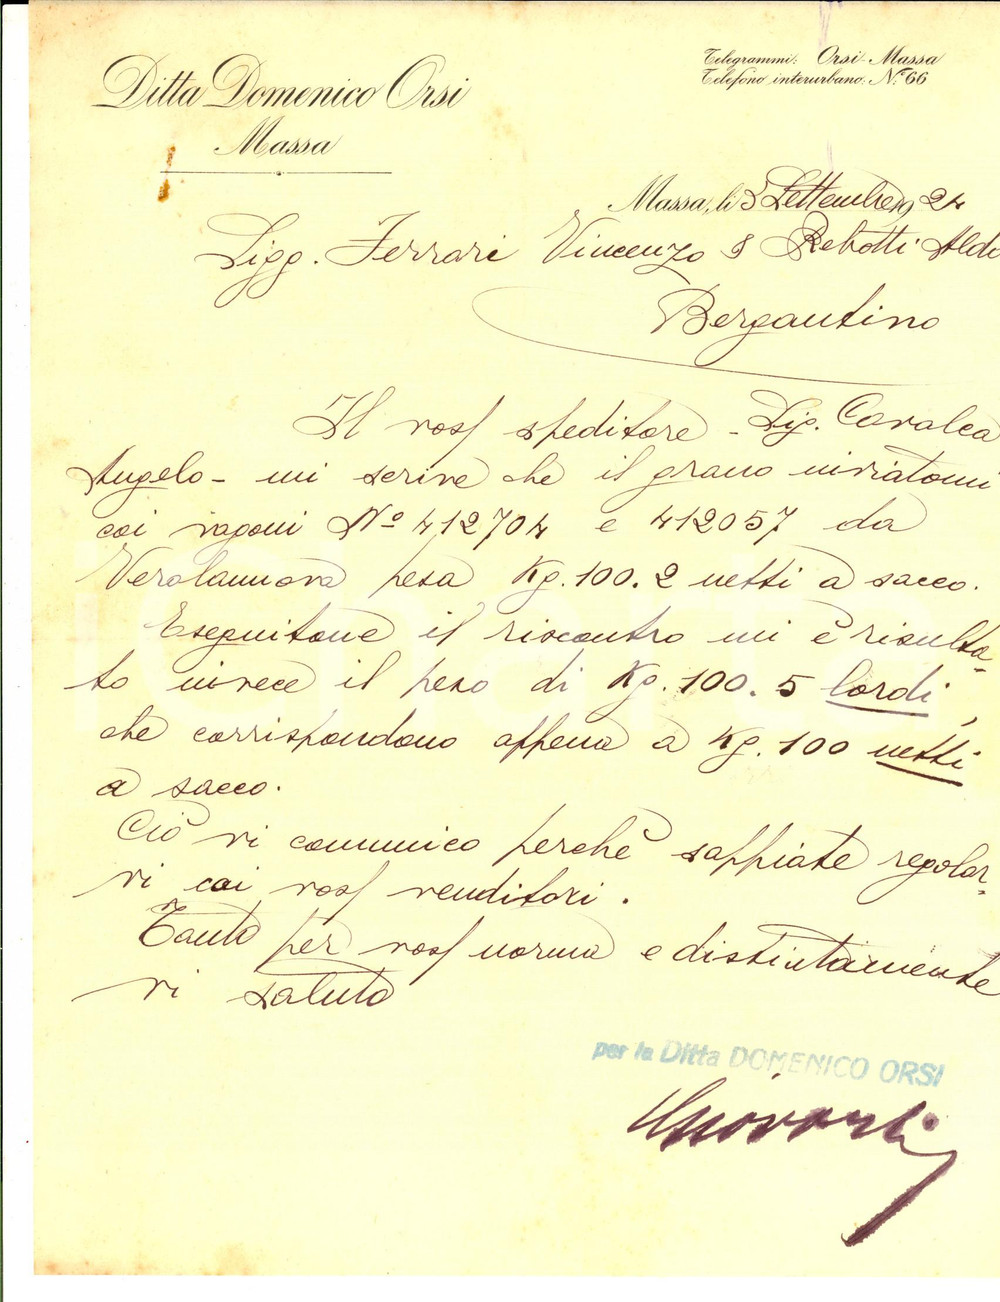 Ditta Domenico Orsi
Massa
Telegrammi: Orsi-Massa
Telefono interurbano: N.º 66
Massa, li 5 Settembre 1924
Sigg. Ferrari Vincenzo & Rebotti Aldi
Bergantino
Il vosʃ speditore - Sig. Cavalca
Angelo - mi scrive che il grano inviatomi
coi vagoni Nº 412704 e 412057 da
Verolanuova pesa Kg. 100.2 netti a sacco.
Eseguitone il riscontro mi è risulta-
to invece il peso di Kg. 100.5 lordi,
che corrispondono appena a Kg. 100 netti
a sacco.
Ciò vi comunico perchè sappiate regolar-
vi coi vosʃ venditori.
Tanto per vosʃ norma e distintamente
vi saluto
per la Ditta DOMENICO ORSI
iCharta